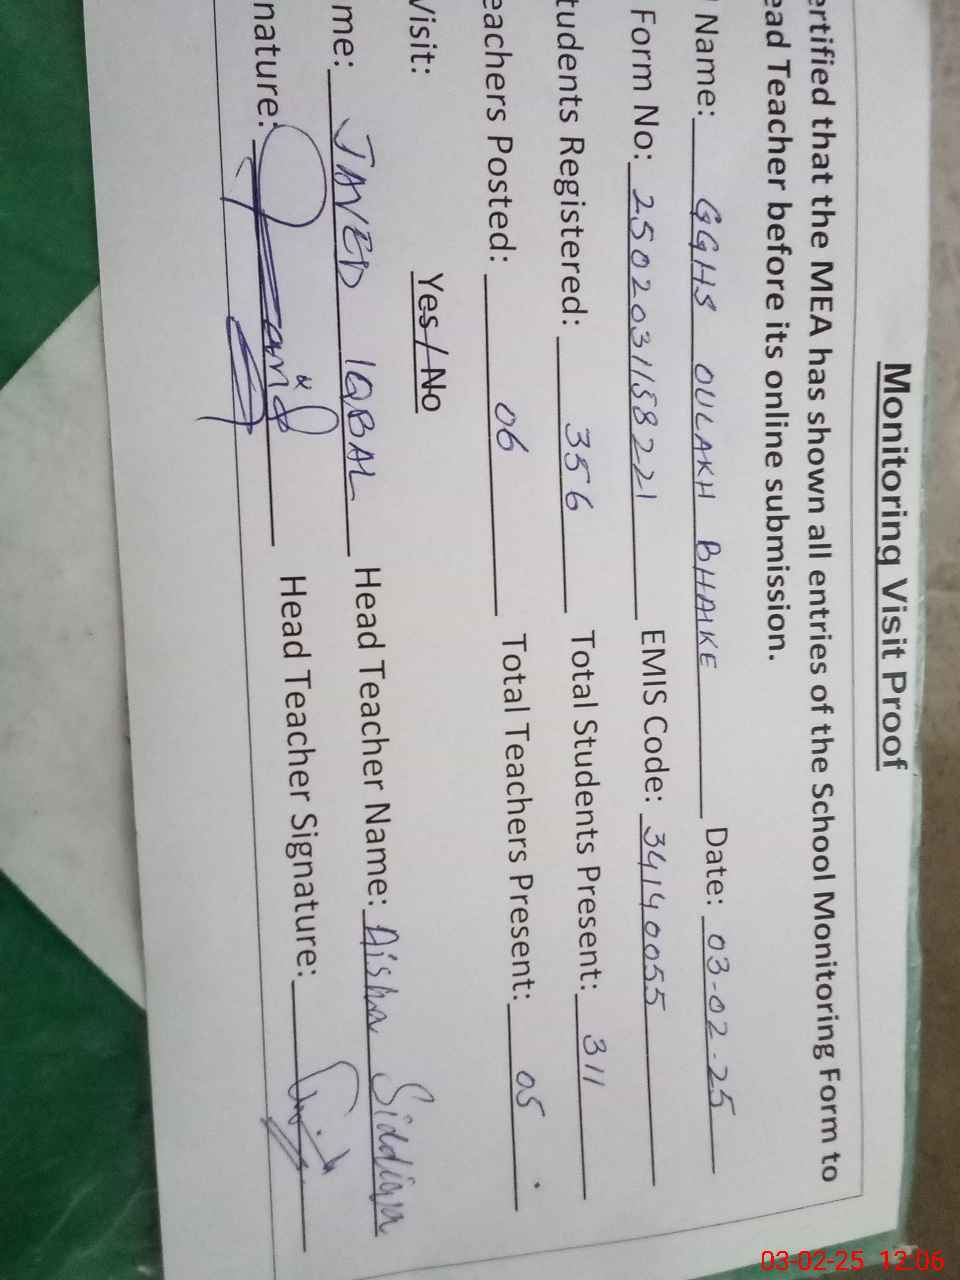 Monitoring Visit Proof
ertified that the MEA has shown all entries of the School Monitoring Form to
ead Teacher before its online submission.
Name: GGHS OULAKH BHAIKE Date: 03-02-25
Form No: 2502031158221 EMIS Code: 34140055
tudents Registered: 356 Total Students Present: 311
eachers Posted: 06 Total Teachers Present: 05
Visit: Yes / No
me: JAVED IQBAL Head Teacher Name: Aisha Siddiqa
nature: Head Teacher Signature:
03-02-25 12:06